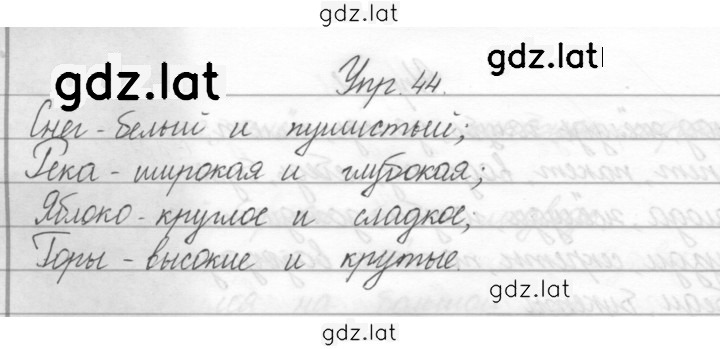 gdz.lat
gdz.lat
gdz.lat
Упр. 44.
Снег - белый и пушистый;
Река - широкая и глубокая;
Яблоко - круглое и сладкое;
Горы - высокие и крутые.
gdz.lat
gdz.lat